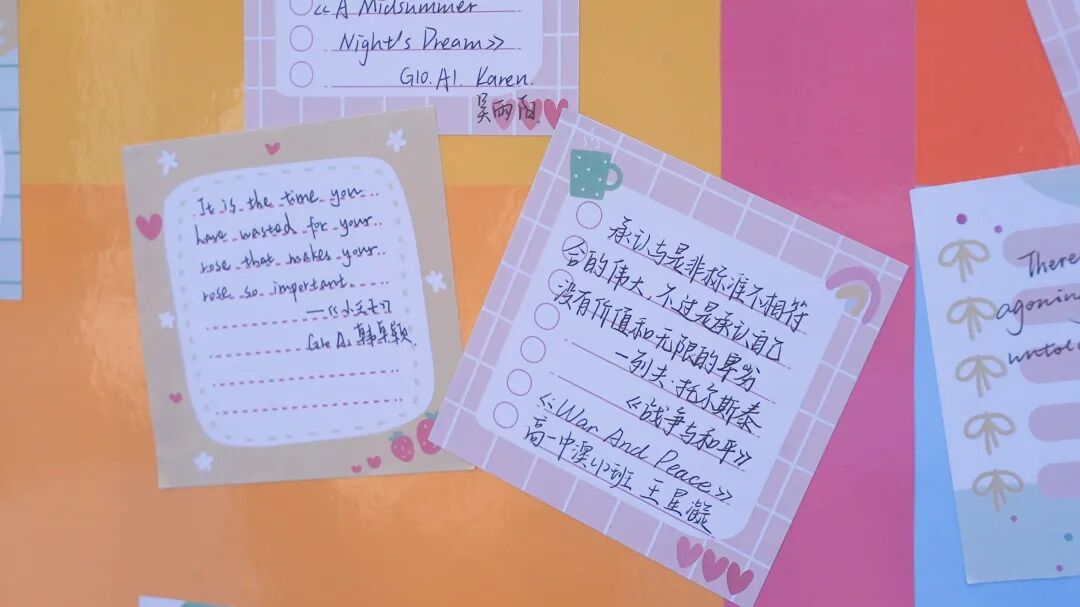 《A Midsummer
Night's Dream》
G10.A1. Karen.
吴雨阳
It is the time you
have wasted for your
rose that makes your
rose so important.
—《小王子》
G10 A1. 韩卓颖
承认与是非标准不相符
合的伟大,不过是承认自己
没有价值和无限的卑劣
—列夫·托尔斯泰
《战争与和平》
《War And Peace》
高一中澳1小班 王星凝
There
agonin
untol